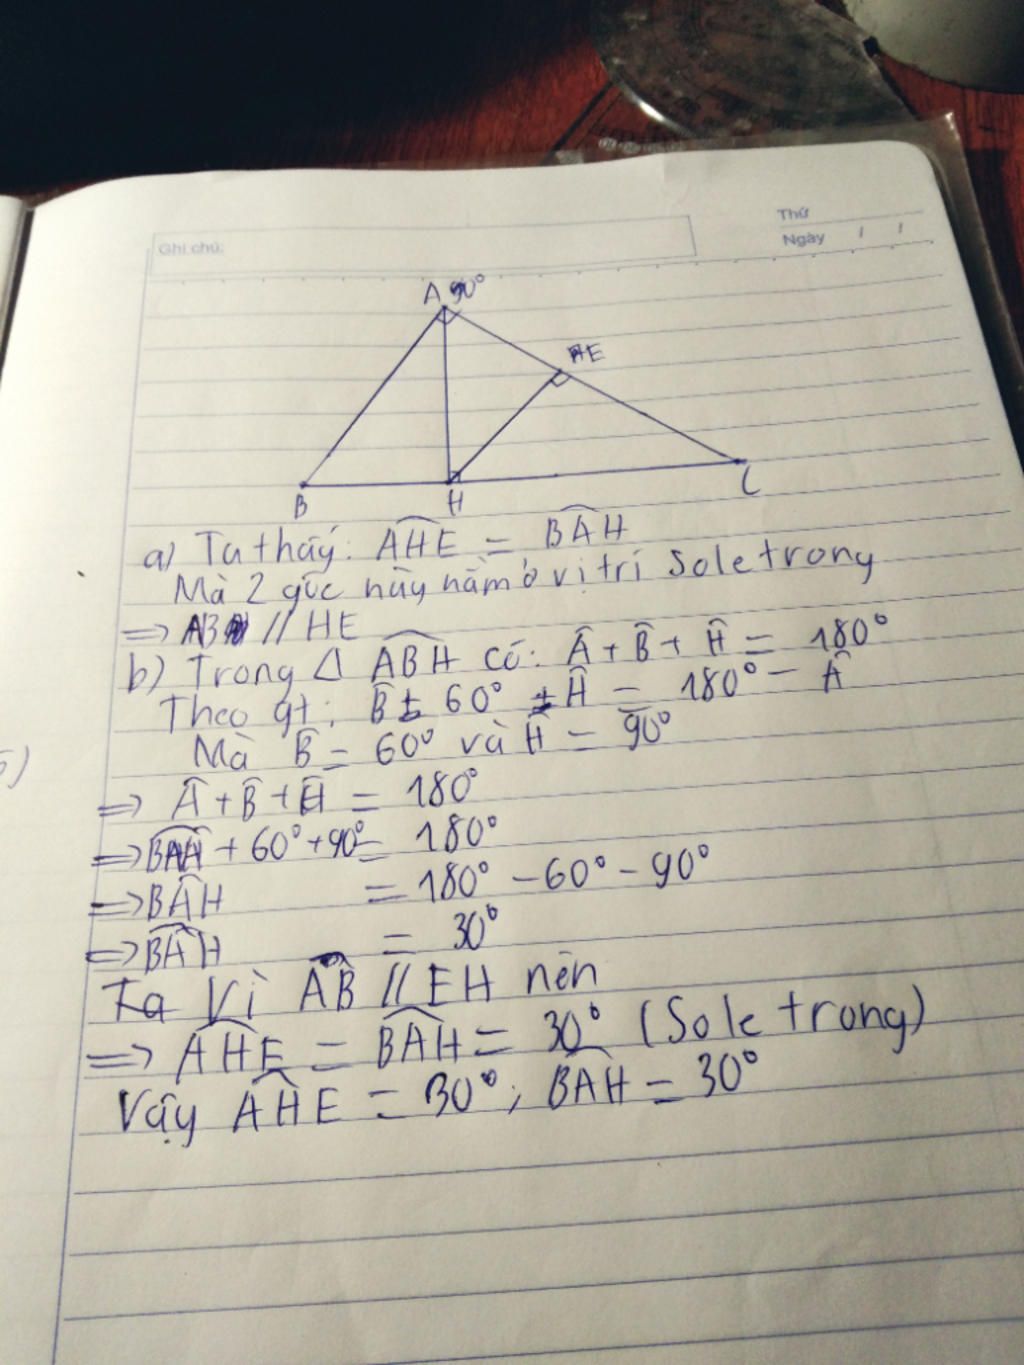 Thứ
Ghi chú:
Ngày / /
A 90°
E
B
H
C
a) Ta thấy: AHE = BAH
Mà 2 góc này nằm ở vị trí Sole trong
=> AB // HE
b) Trong Δ ABH có: Â + B̂ + Ĥ = 180°
Theo gt: B̂ ± 60° ± Ĥ = 180° - Â
Mà B̂ = 60° và Ĥ = 90°
=> Â + B̂ + Ĥ = 180°
=> BAH + 60° + 90° = 180°
=> BAH = 180° - 60° - 90°
=> BAH = 30°
Ta Vì AB // EH nên
=> AHE = BAH = 30° (Sole trong)
Vậy AHE = 30°; BAH = 30°
5)